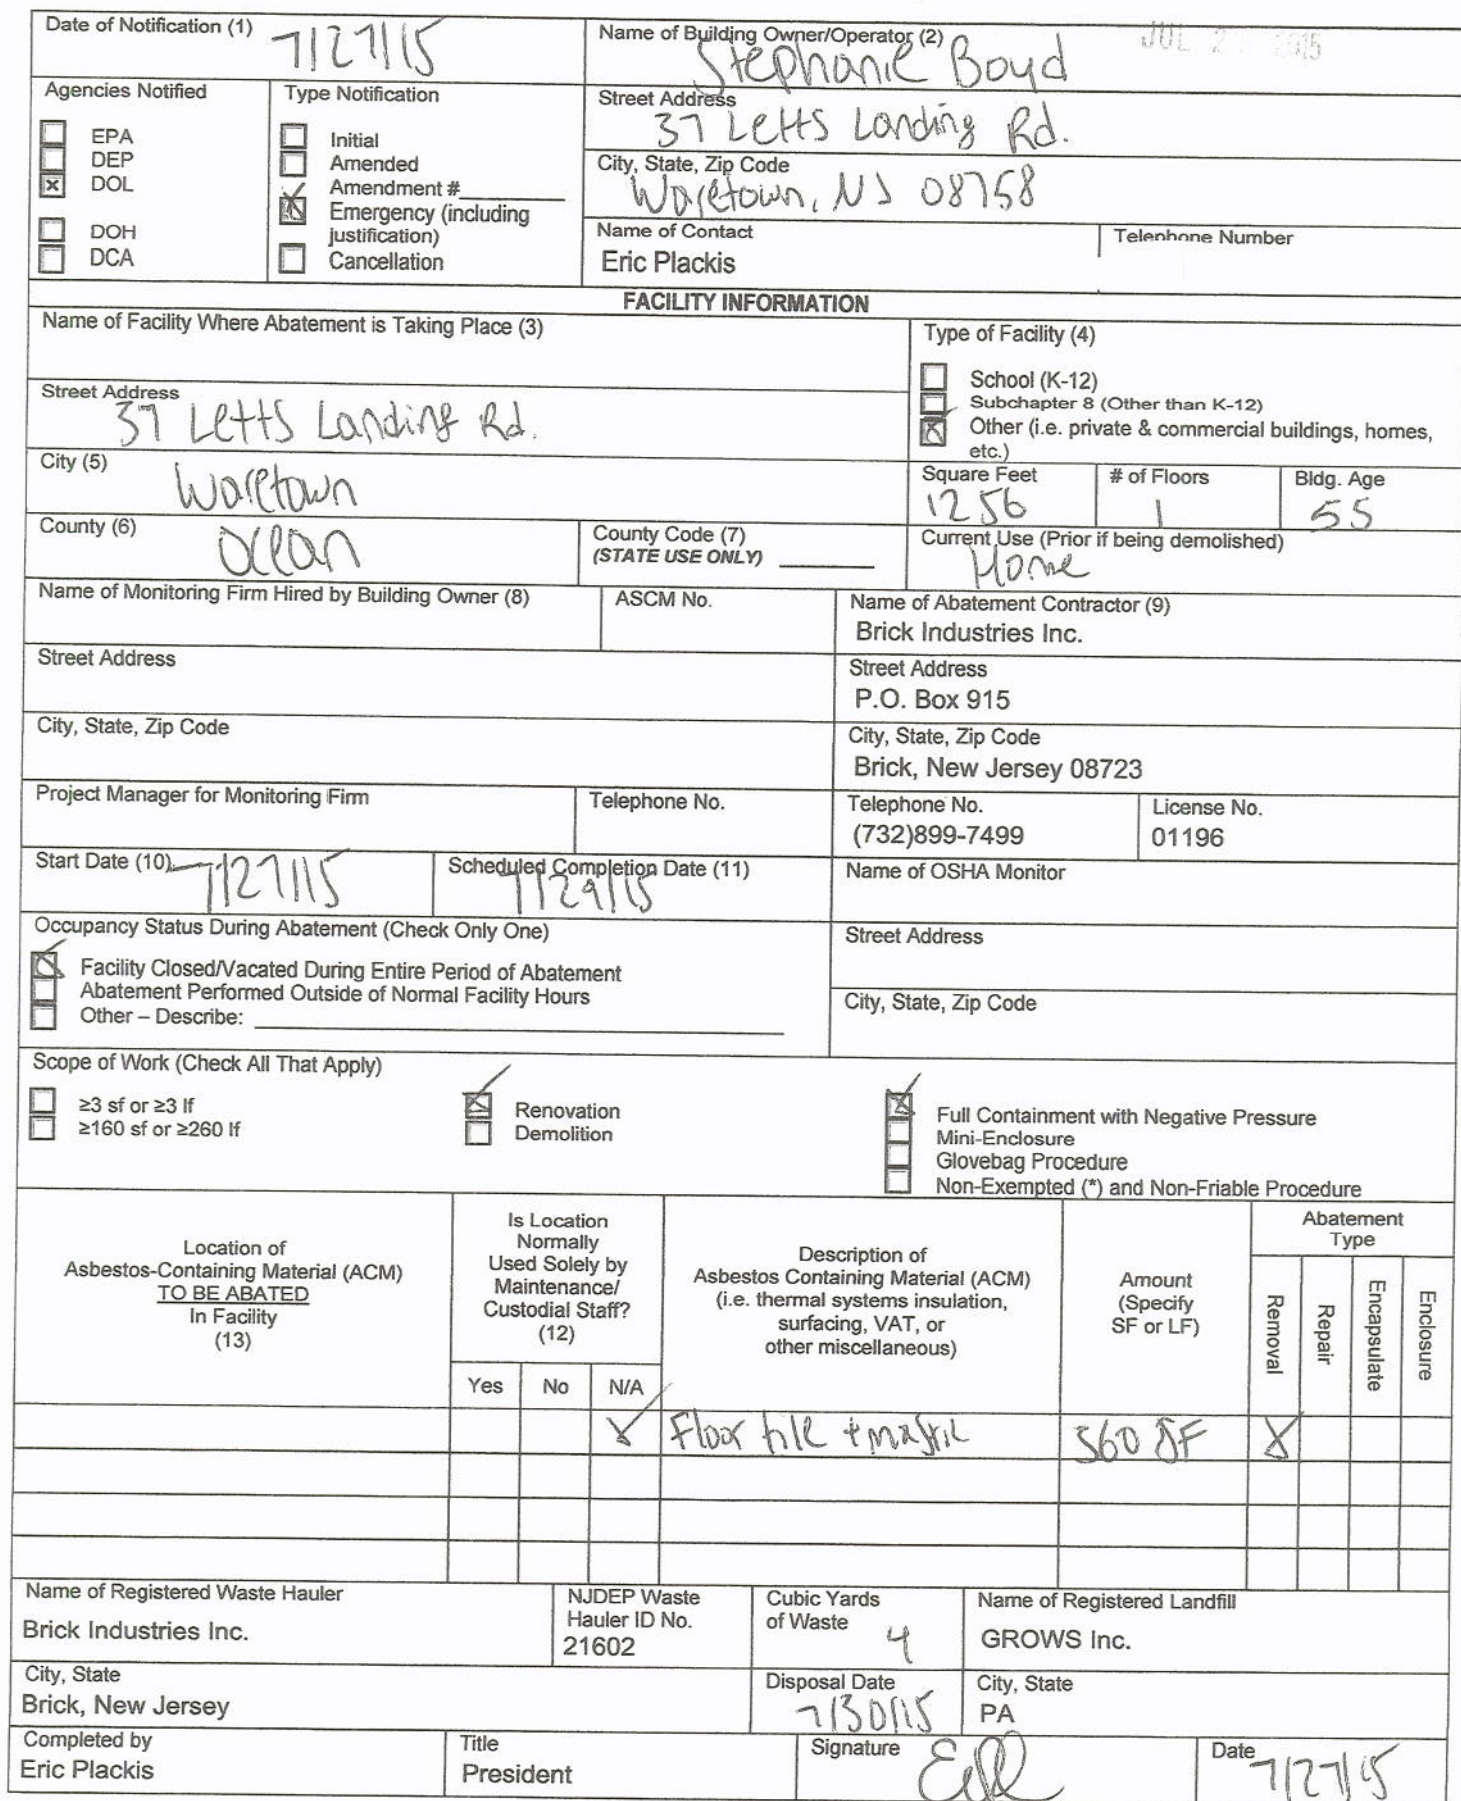 Date of Notification (1) 7/27/15
Name of Building Owner/Operator (2)
Stephanie Boyd
JUL 2 2015
Agencies Notified
EPA
DEP
DOL
DOH
DCA
Type Notification
Initial
Amended
Amendment #
Emergency (including
justification)
Cancellation
Street Address
37 Letts Landing Rd.
City, State, Zip Code
Waretown, NJ 08758
Name of Contact
Eric Plackis
Telephone Number
FACILITY INFORMATION
Name of Facility Where Abatement is Taking Place (3)
Type of Facility (4)
School (K-12)
Subchapter 8 (Other than K-12)
Other (i.e. private & commercial buildings, homes,
etc.)
Street Address
37 Letts Landing Rd.
City (5) Waretown
Square Feet
1256
# of Floors
1
Bldg. Age
55
County (6) Ocean
County Code (7)
(STATE USE ONLY)
Current Use (Prior if being demolished)
Home
Name of Monitoring Firm Hired by Building Owner (8)
ASCM No.
Name of Abatement Contractor (9)
Brick Industries Inc.
Street Address
Street Address
P.O. Box 915
City, State, Zip Code
City, State, Zip Code
Brick, New Jersey 08723
Project Manager for Monitoring Firm
Telephone No.
Telephone No.
(732)899-7499
License No.
01196
Start Date (10) 7/27/15
Scheduled Completion Date (11)
7/29/15
Name of OSHA Monitor
Occupancy Status During Abatement (Check Only One)
Facility Closed/Vacated During Entire Period of Abatement
Abatement Performed Outside of Normal Facility Hours
Other – Describe:
Street Address
City, State, Zip Code
Scope of Work (Check All That Apply)
≥3 sf or ≥3 lf
≥160 sf or ≥260 lf
Renovation
Demolition
Full Containment with Negative Pressure
Mini-Enclosure
Glovebag Procedure
Non-Exempted (*) and Non-Friable Procedure
Location of
Asbestos-Containing Material (ACM)
TO BE ABATED
In Facility
(13)
Is Location
Normally
Used Solely by
Maintenance/
Custodial Staff?
(12)
Yes No N/A
Description of
Asbestos Containing Material (ACM)
(i.e. thermal systems insulation,
surfacing, VAT, or
other miscellaneous)
Amount
(Specify
SF or LF)
Abatement
Type
Removal
Repair
Encapsulate
Enclosure
X Floor tile + mastic 560 SF X
Name of Registered Waste Hauler
Brick Industries Inc.
NJDEP Waste
Hauler ID No.
21602
Cubic Yards
of Waste 4
Name of Registered Landfill
GROWS Inc.
City, State
Brick, New Jersey
Disposal Date
7/30/15
City, State
PA
Completed by
Eric Plackis
Title
President
Signature
Date 7/27/15